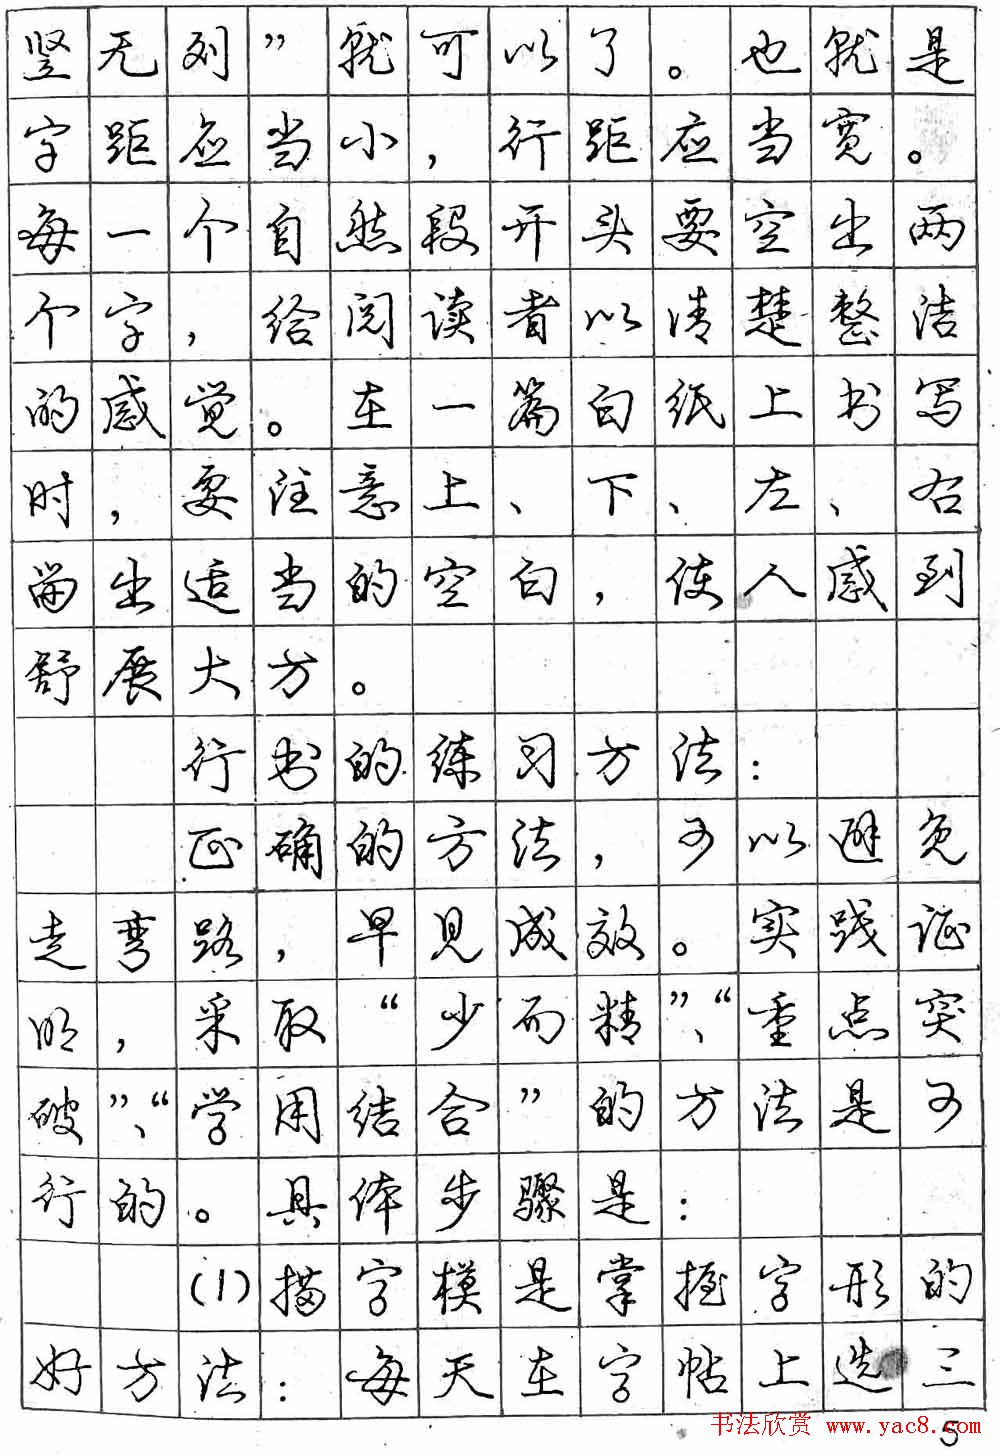 竖无列”就可以了。也就是
字距应当小，行距应当宽。
每一个自然段开头要空出两
个字，给阅读者以清楚整洁
的感觉。在一篇白纸上书写
时，要注意上、下、左、右
留出适当的空白，使人感到
舒展大方。
行书的练习方法：
正确的方法，可以避免
走弯路，早见成效。实践证
明，采取“少而精”、“重点突
破”、“学用结合”的方法是可
行的。具体步骤是：
(1)描字模是掌握字形的
好方法：每天在字帖上选三
5
书法欣赏 www.yac8.com